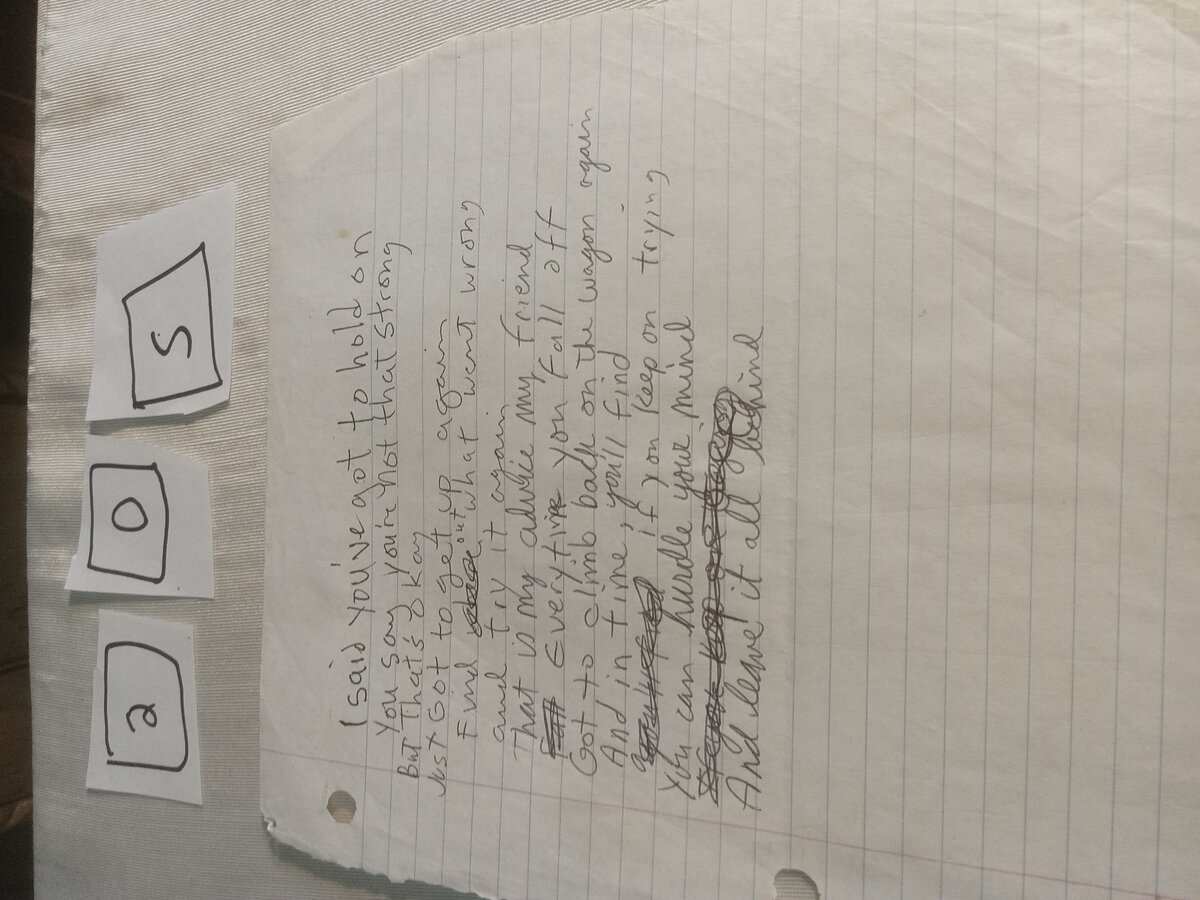 2 0 5
I said you've got to hold on
You say you're not that strong
But that's okay
Just Got to get up again
Find out what went wrong
and try it again
That is my advice my friend
Everytime you fall off
Got to climb back on the wagon again
And in time, you'll find
if you keep on trying
You can hurdle your mind
And leave it all behind